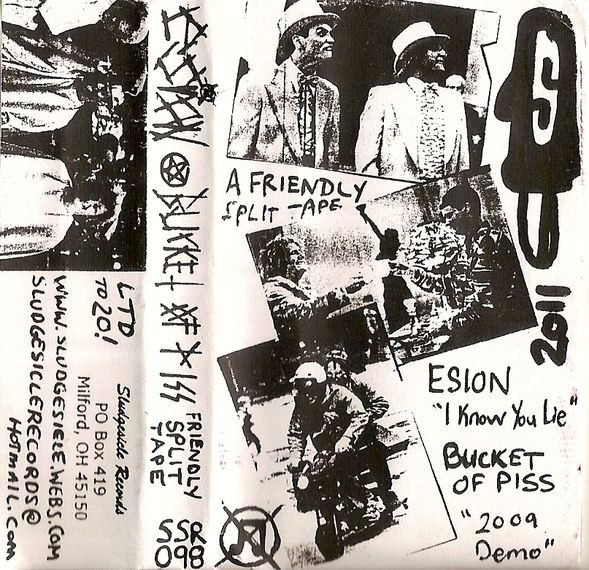 LTD
TO 20!
Sludgesicle Records
PO Box 419
Milford, OH 45150
WWW.SLUDGESICLE.WEBS.COM
SLUDGESICLERECORDS@
HOTMAIL.COM
ESION BUCKET OF PISS
FRIENDLY
SPLIT
TAPE
SSR
098
A FRIENDLY
SPLIT TAPE
2011
ESION
"I Know You Lie"
BUCKET
OF PISS
"2009
Demo"